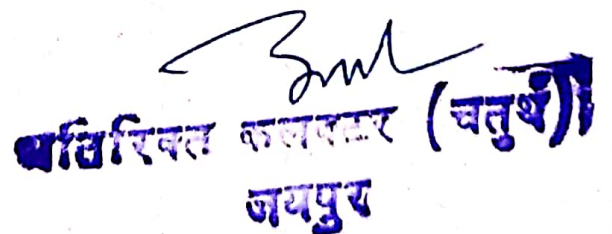 अतिरिक्त कलक्टर (चतुर्थ)
जयपुर